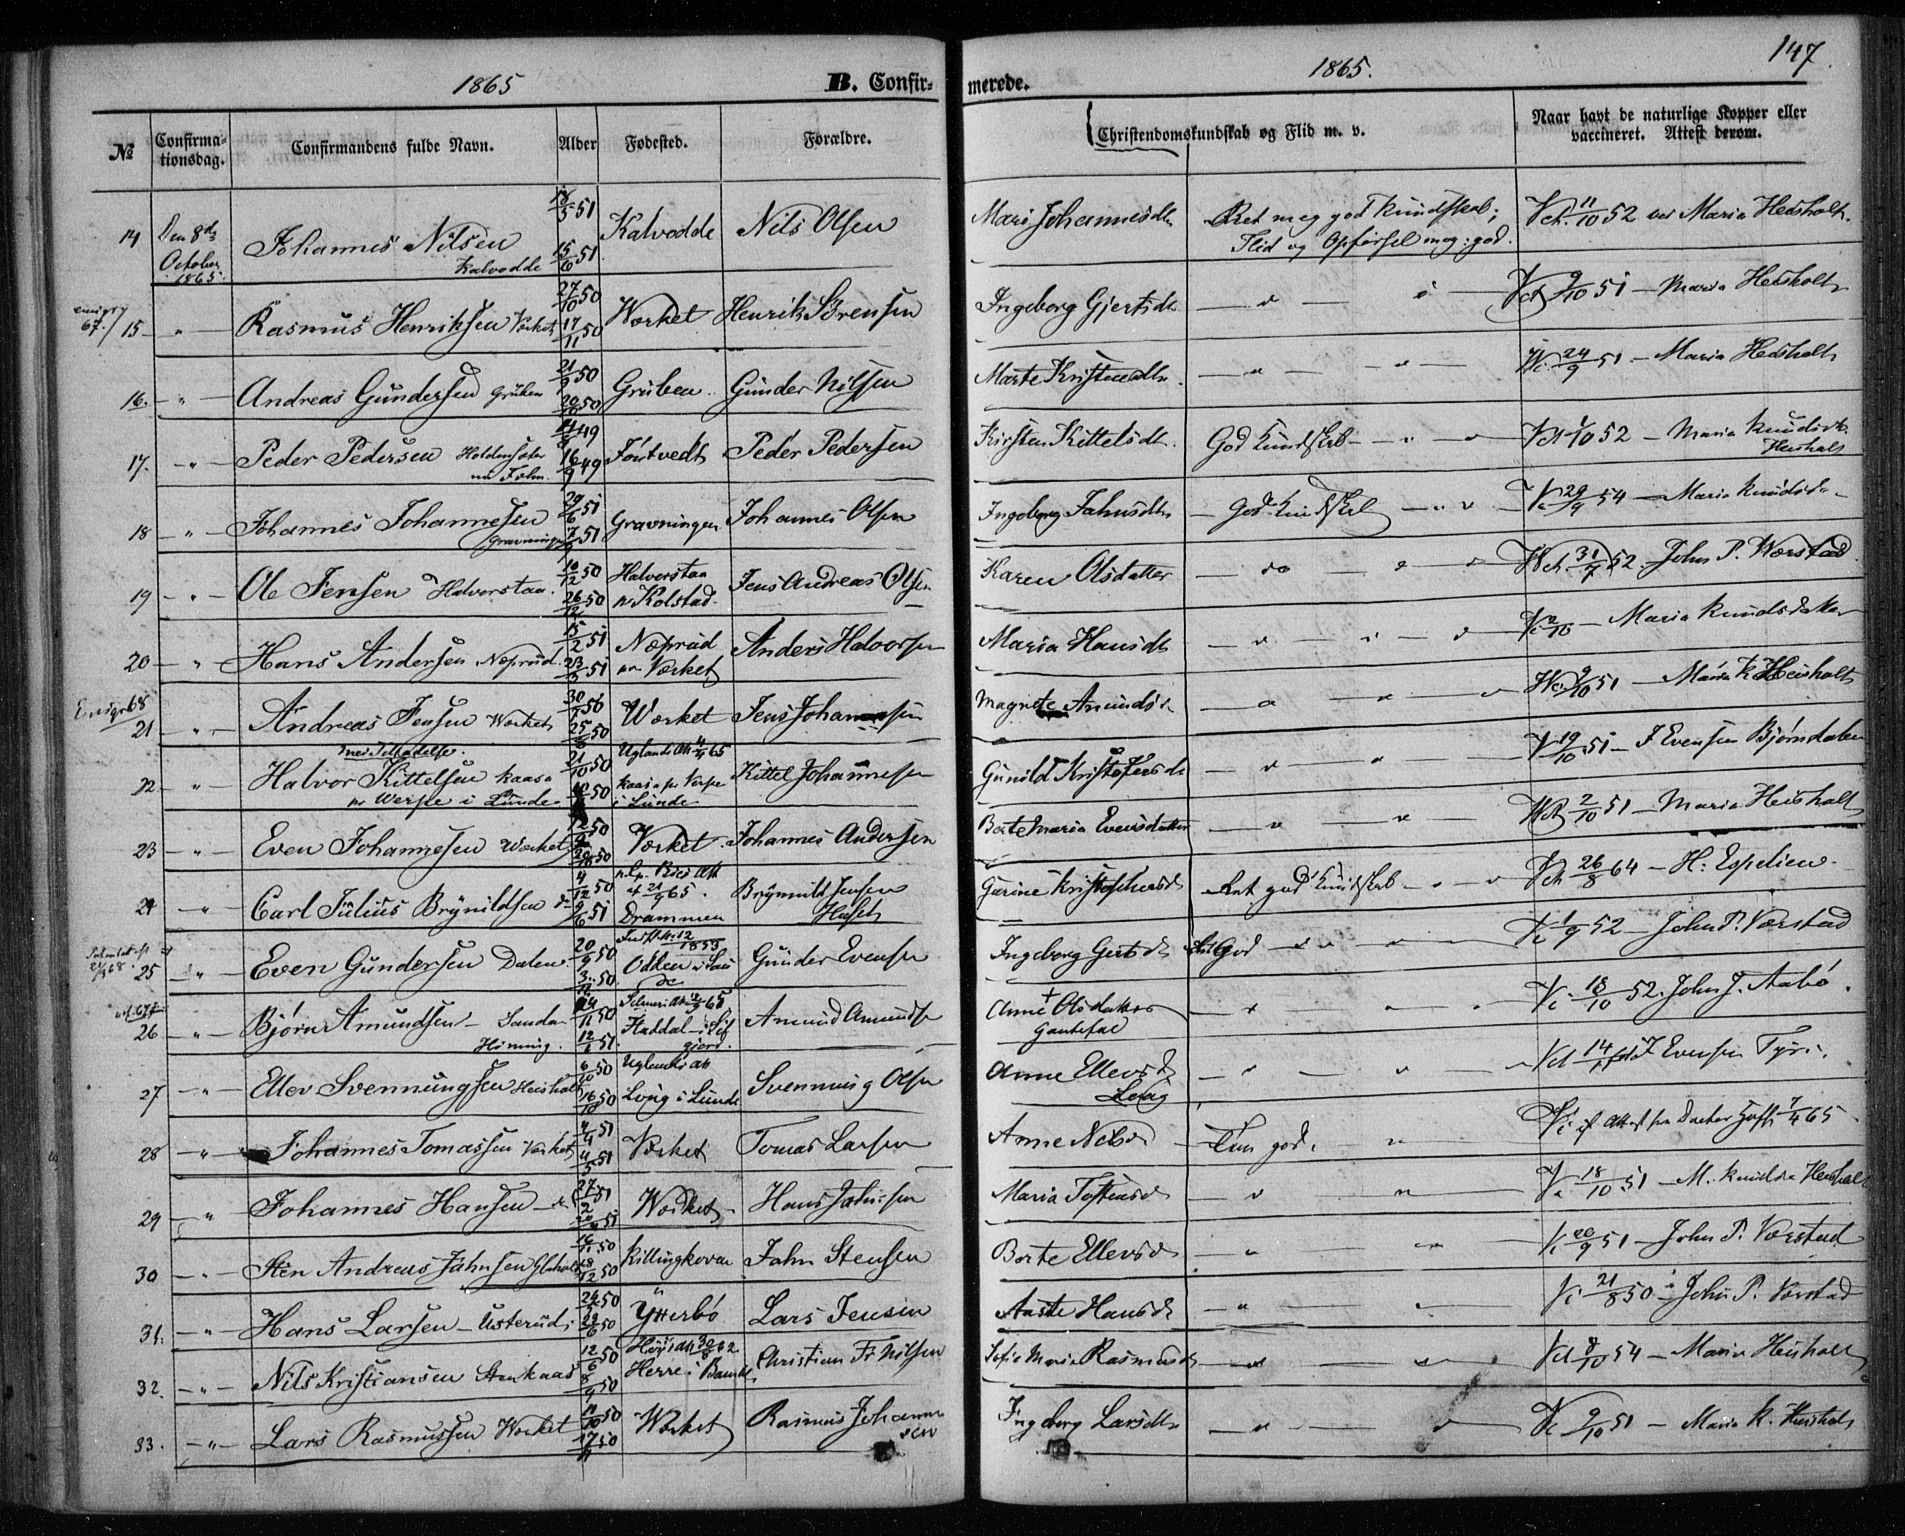 1865 B. Confir- merede. 1865. 147
№ Confirma-tionsdag. Confirmandens fulde Navn. Alder Fødested. Forældre. Christendomskundskab og Flid m. v. Naar havt de naturlige Kopper eller vaccineret. Attest derom.
14 Den 8de October 1865. Johannes Nilsen Kalvodde 18/5 51 15/6 51 Kalvodde Nils Olsen Mari Johannesdtr Ret meg god Kundskab; Flid og Opførsel meg: god. Vct. 11/10 52 ved Maria Heisholt.
67. 15 " Rasmus Henriksen Værket 27/10 50 17/11 50 Værket Henrik Sørensen Ingeborg Gjertsdtr 9/10 51 – Maria Heisholt
16. " Andreas Gundersen Gruben 21/9 50 20/10 50 Gruben Gunder Nilsen Marte Kristensdtr. " " 24/9 51 – Maria Heisholt
17. " Peder Pedersen 49 16/9 49 Føntvedt Peder Pedersen Kirsten Kittelsdtr. God Kundskab " " /10 52 – Maria Knudsdtr. Heisholt
18 " Johannes Johannesen Gravningen 29/6 51 7/9 51 Gravningen Johannes Olsen Ingeborg Jahnsdtr God Kundskab " " 29/9 54 – Maria Knudsdr
19 " Ole Jensen Halvorstaa. 10/12 50 26/12 50 Halvorstaa pr Kolstad Jens Andreas Olsen Karen Olsdatter do " " 31/7 52. John P. Værstad
20 " Hans Andersen Næprud 15/2 51 23/3 51 Næprud pr Værket Anders Halvorsen Maria Hansdtr " " " /10 – Maria Knudsdatter
68 21 " Andreas Jensen Værket 30/ 25/ 50 Værket Jens Johannesen Magnete Amundsdr " " " 9/10 51 – Maria K Heisholt
22 " Halvor Kittelsen Kaasa pr Værpe i Lunde 21/10 50 50 4/9 65 Kaasa pr Verpe i Lunde Kittel Johannesen Gunild Kristofersdr " " 19/10 51 – J Evensen Bjørndalen
23 " Even Johannesen Værket 12/9 50 50 Værket Johannes Andersen Berte Maria Evensdatter " " 2/10 51 – Maria Heisholt
24 " Carl Julius Brynildsen do 4/12 50 9/6 51 21/9 65. Drammen Brynnild Jensen Gurine Kristophersdr god Kundskab " " Vct 26/8 64 – H. Espelien
25 " Even Gundersen Dalen 20/9 50 50 1853 Odden i Sau Gunder Evensen Ingeborg Gertsdr God " " 1/9 52 – John P. Værstad
26 " Bjørn Amundsen – Sanda 50 12/1 51. 65 Amund Amundsen Anne Olsdatter Gautefal " " " 18/10 52. John J. Aabø.
27 " Ellev Svennungsen Heisholt 6/10 50 16/10 50 Løvig i Lunde Svennung Olsen Anne Ellevsdr Løvig " " " Vct 14/11 J Evensen Tyri.
28 " Johannes Tomassen Værket 4/4 51 4/5 51 Værket Tomas Larsen Anne Nelsdr Tem god. " Attest fra Doctor Hoff 7/4 65
29 " Johannes Hansen do 27/2 51 51 Værket Hans Jahnsen Maria Toftensdr " " 18/10 51 – M. Knudsdr Heisholt
30 " Sten Andreas Jahnsen 16/11 50 28/12 50 Killingkovan Jahn Stensen Berte Ellevsdr " " 20/9 51 – John P. Værstad
31. " Hans Larsen – Usterud. 24/5 50 23/6 50 Ytterbø Lars Jensen Aaste Hansdr " " 21/8 50 – John P. Værstad
32. " Nils Kristiansen Stenkaas 12/6 50 8/9 50 30/8 62 Herre i Bamble Christian Fr Nilsen Sofie Marie Rasmusdr " " Vct 8/10 54 – Maria Heisholt
33. " Lars Rasmussen Værket 11/10 50 17/11 50 Værket Rasmus Johannesen Ingeborg Larsdtr " " 9/10 51 – Maria K. Heisholt